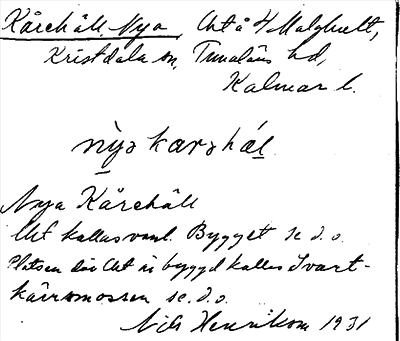 Kårehäll, Nya, Lht å 4 Malghult,
Kristdala sn, Tunaläns hd,
Kalmar l.
nỳɜ kærɜhál
Nya Kårehäll
Lht kallas vanl. Bygget se d.o.
Platsen där Lht är byggd kallas Svart-
kärrsmossen se d.o.
Nils Henrikson 1931